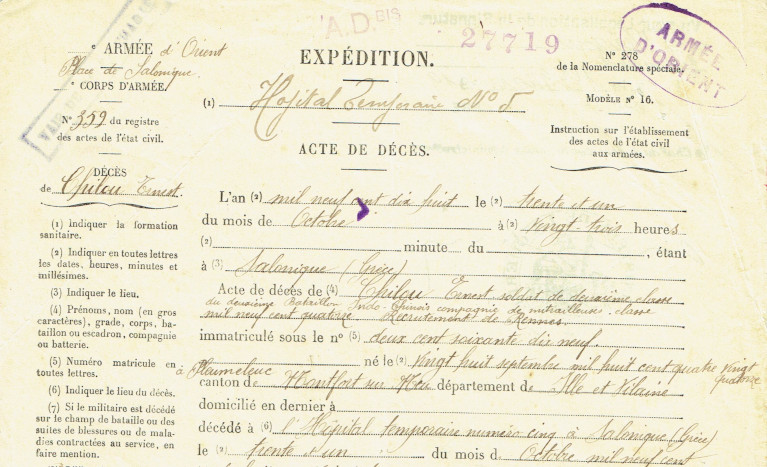 A.D BIS
27719
ARMÉE D'ORIENT
° ARMÉE d'Orient
Place de Salonique
° CORPS D'ARMÉE.
N° 359 du registre
des actes de l'état civil.
DÉCÈS
de Chilou Ernest.
(1) Indiquer la formation
sanitaire.
(2) Indiquer en toutes lettres
les dates, heures, minutes et
millésimes.
(3) Indiquer le lieu.
(4) Prénoms, nom (en gros
caractères), grade, corps, ba-
taillon ou escadron, compagnie
ou batterie.
(5) Numéro matricule en
toutes lettres.
(6) Indiquer le lieu du décès.
(7) Si le militaire est décédé
sur le champ de bataille ou des
suites de blessures ou de mala-
dies contractées au service, en
faire mention.
EXPÉDITION.
(1) Hopital Temporaire N° 5
ACTE DE DÉCÈS.
N° 278
de la Nomenclature spéciale.
MODÈLE N° 16.
Instruction sur l'établissement
des actes de l'état civil
aux armées.
L'an (2) mil neuf cent dix huit le (2) trente et un
du mois de Octobre à (2) Vingt-trois heures
(2) minute du , étant
à (3) Salonique (Grèce)
Acte de décès de (4) Chilou Ernest soldat de deuxième classe
du deuxième Bataillon Indo Chinois compagnie de mitrailleuse classe
mil neuf cent quatorze Recrutement de Rennes
immatriculé sous le n° (5) deux cent soixante dix neuf
à Pleumeleuc né le Vingt huit septembre mil huit cent quatre vingt
quatorze
canton de Montfort sur Meu département de Ille et Vilaine
domicilié en dernier à
décédé à (6) l'Hôpital temporaire numéro cinq à Salonique (Grèce)
le (2) trente et un du mois de Octobre mil neuf cent